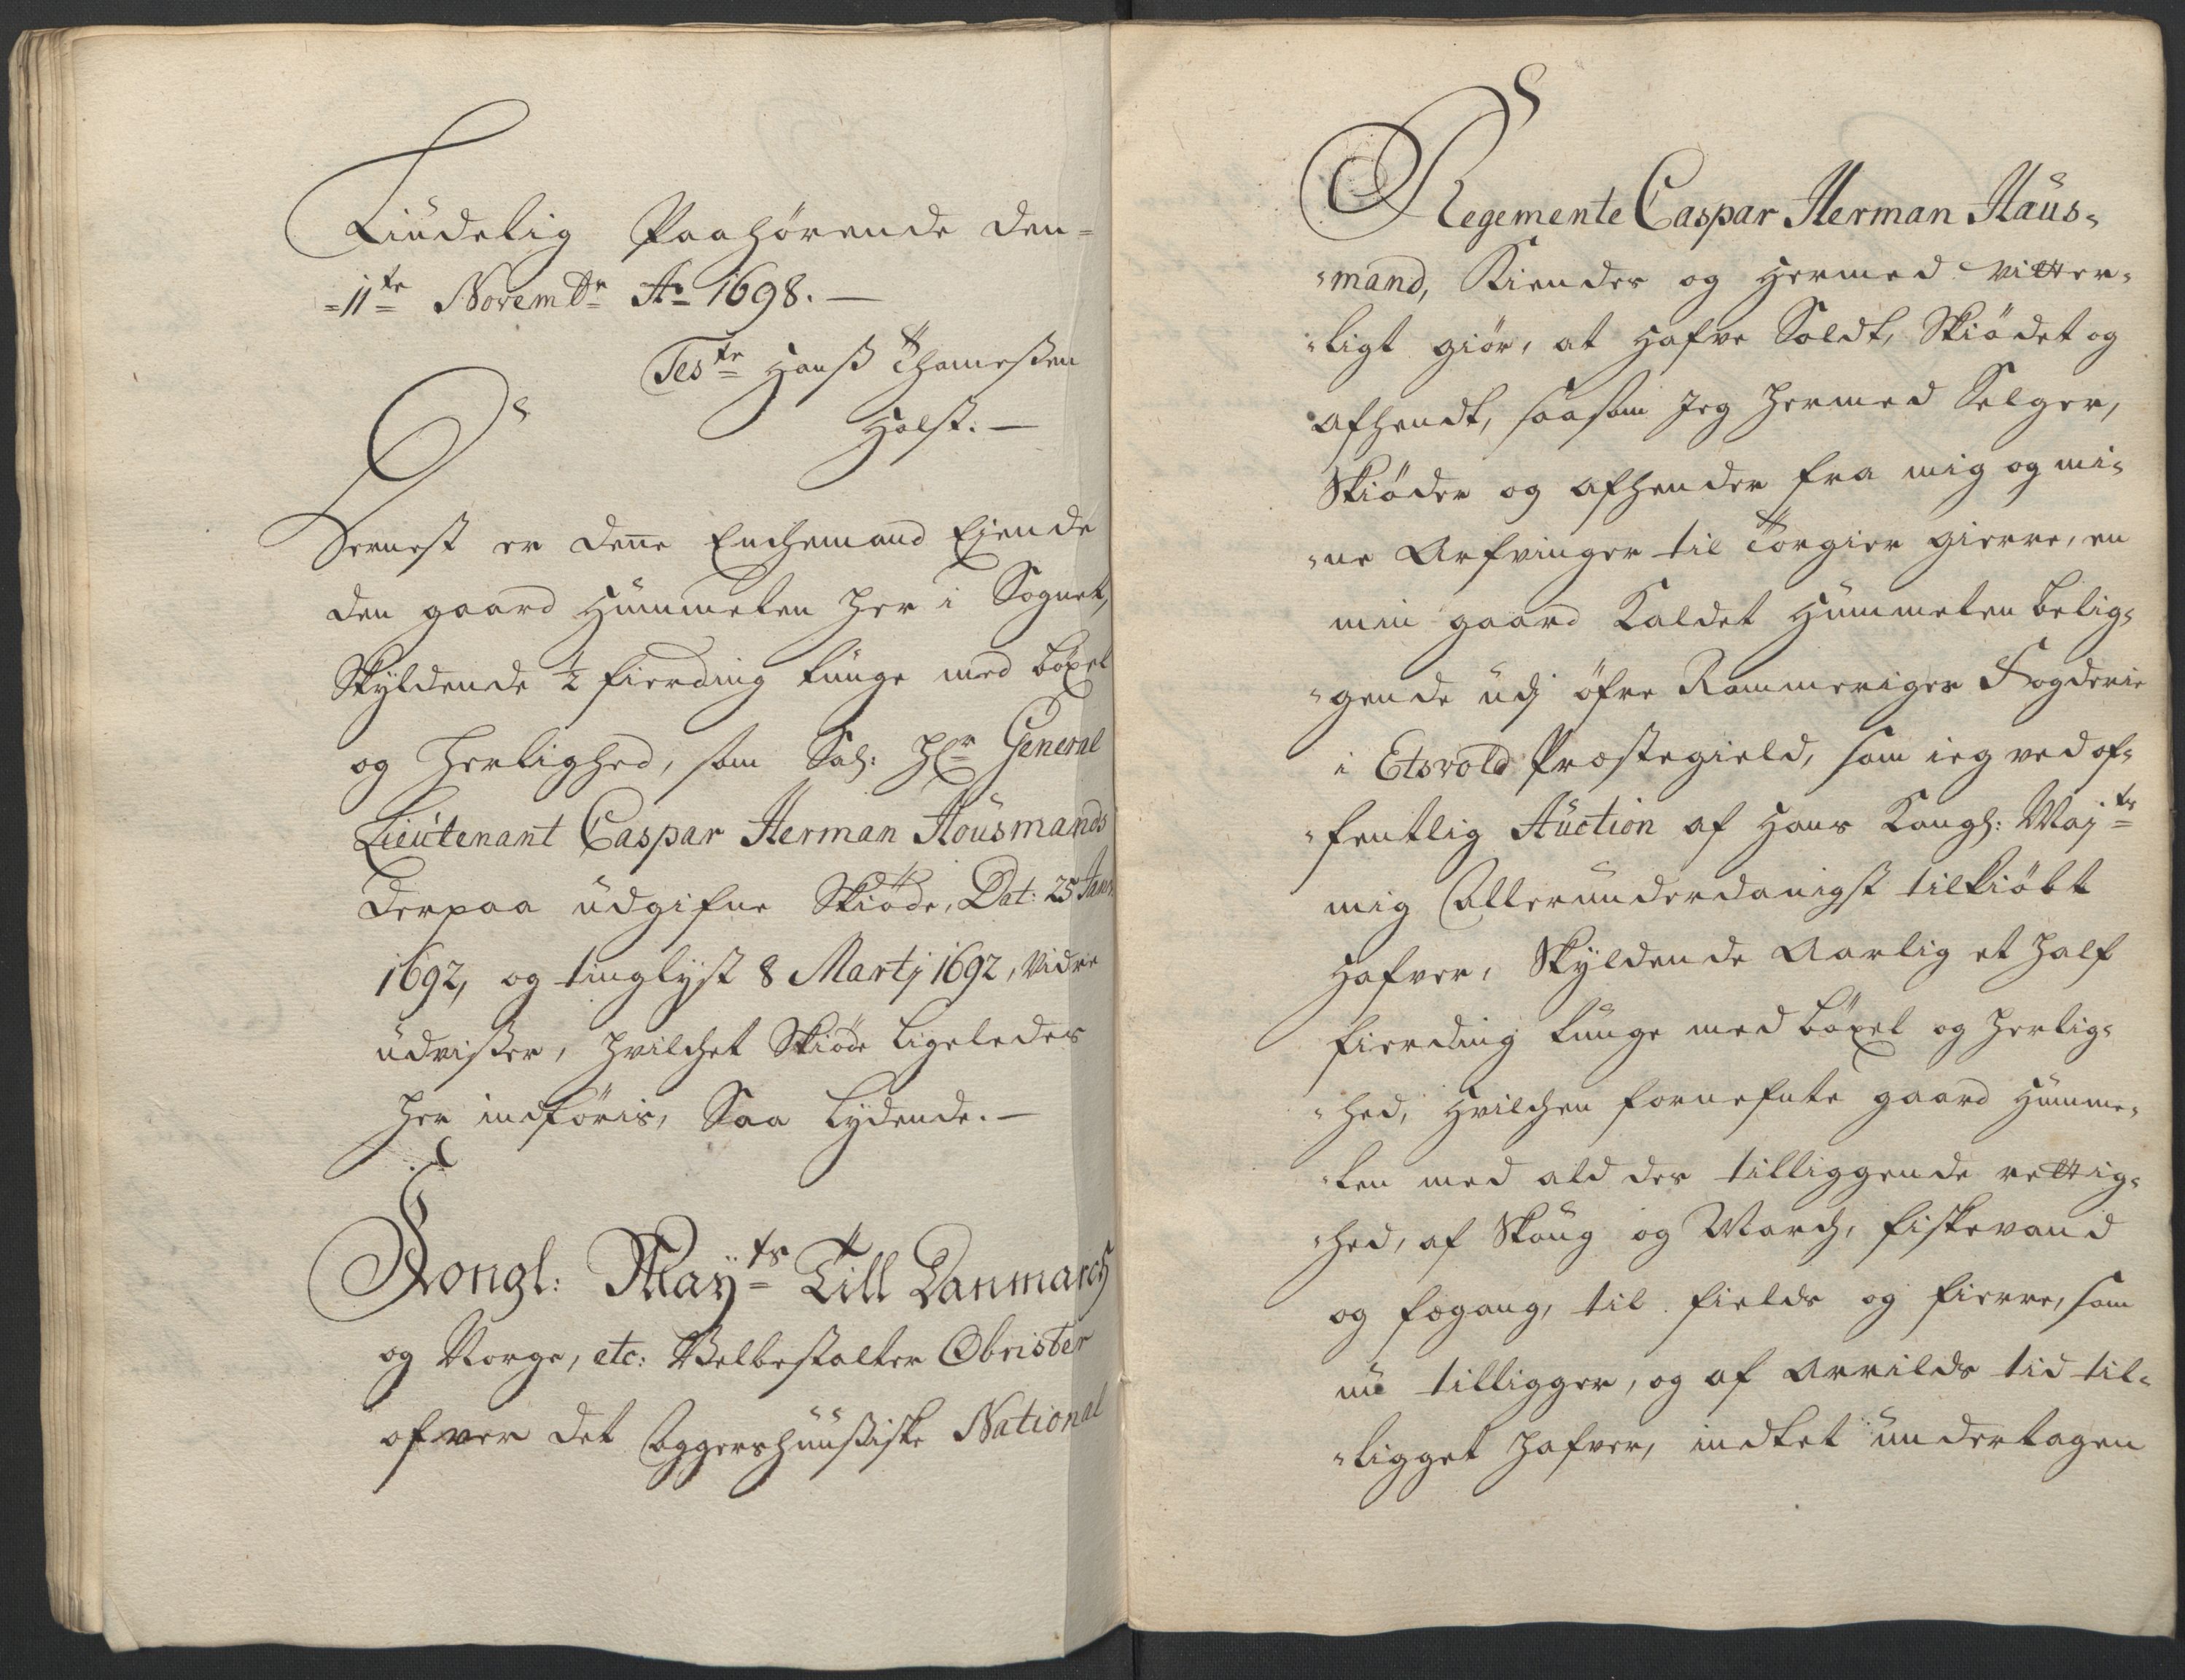 Liudelig Paahörende den=
=11te Novembr Ao 1698. —
Teste Hanß Thameßen
Holst. —
Dernest er denne Enchemand Ejende
den gaard Hummelen her i Sognet,
Skyldende ½ fierding tunge med böxel
og Herlighed, som Sal: Hr General
Lieutenant Caspar Herman Housmands
derpaa udgifne Skiöde, Dat: 25 Janr
1692, og tinglyst 8 Martj 1692, Vidre
udvißer, hvilchet Skiöde Ligeledes
her indföris, Saa Lydende. —
Kongl: Mayts Till Danmarch
og Norge, etc: Velbestalter Obrister
ofver det Aggershuusiske National
Regemente Caspar Herman Haus=
=mand, Kiender og Hermed vitter=
=ligt giör, at Hafve Soldt, Skiödet og
afhendt, saasom Jeg hermed Selger,
Skiöder og afhender fra mig og mi=
=ne Arfvinger til Törgier gierre, en
min gaard Kaldet Hummelen belig=
=gende udj öfre Rommeriges Fogderie
i Etsvold Præstegield, som ieg ved of=
=fentlig Auction af Hans Kongl: Majts
mig Allerunderdanigst tilkiöbt
Hafver, Skyldende Aarlig et half
fierding tunge med böxel og Herlig=
=hed, Hvilchen fornefnte gaard Humme=
=len med ald des tilliggende rettig=
=hed, af Skoug og March, fiskevand
og fægang, til fields og fierre, som
nu tilligger, og af Arrilds tid til=
=ligget hafver, indtet undertagen